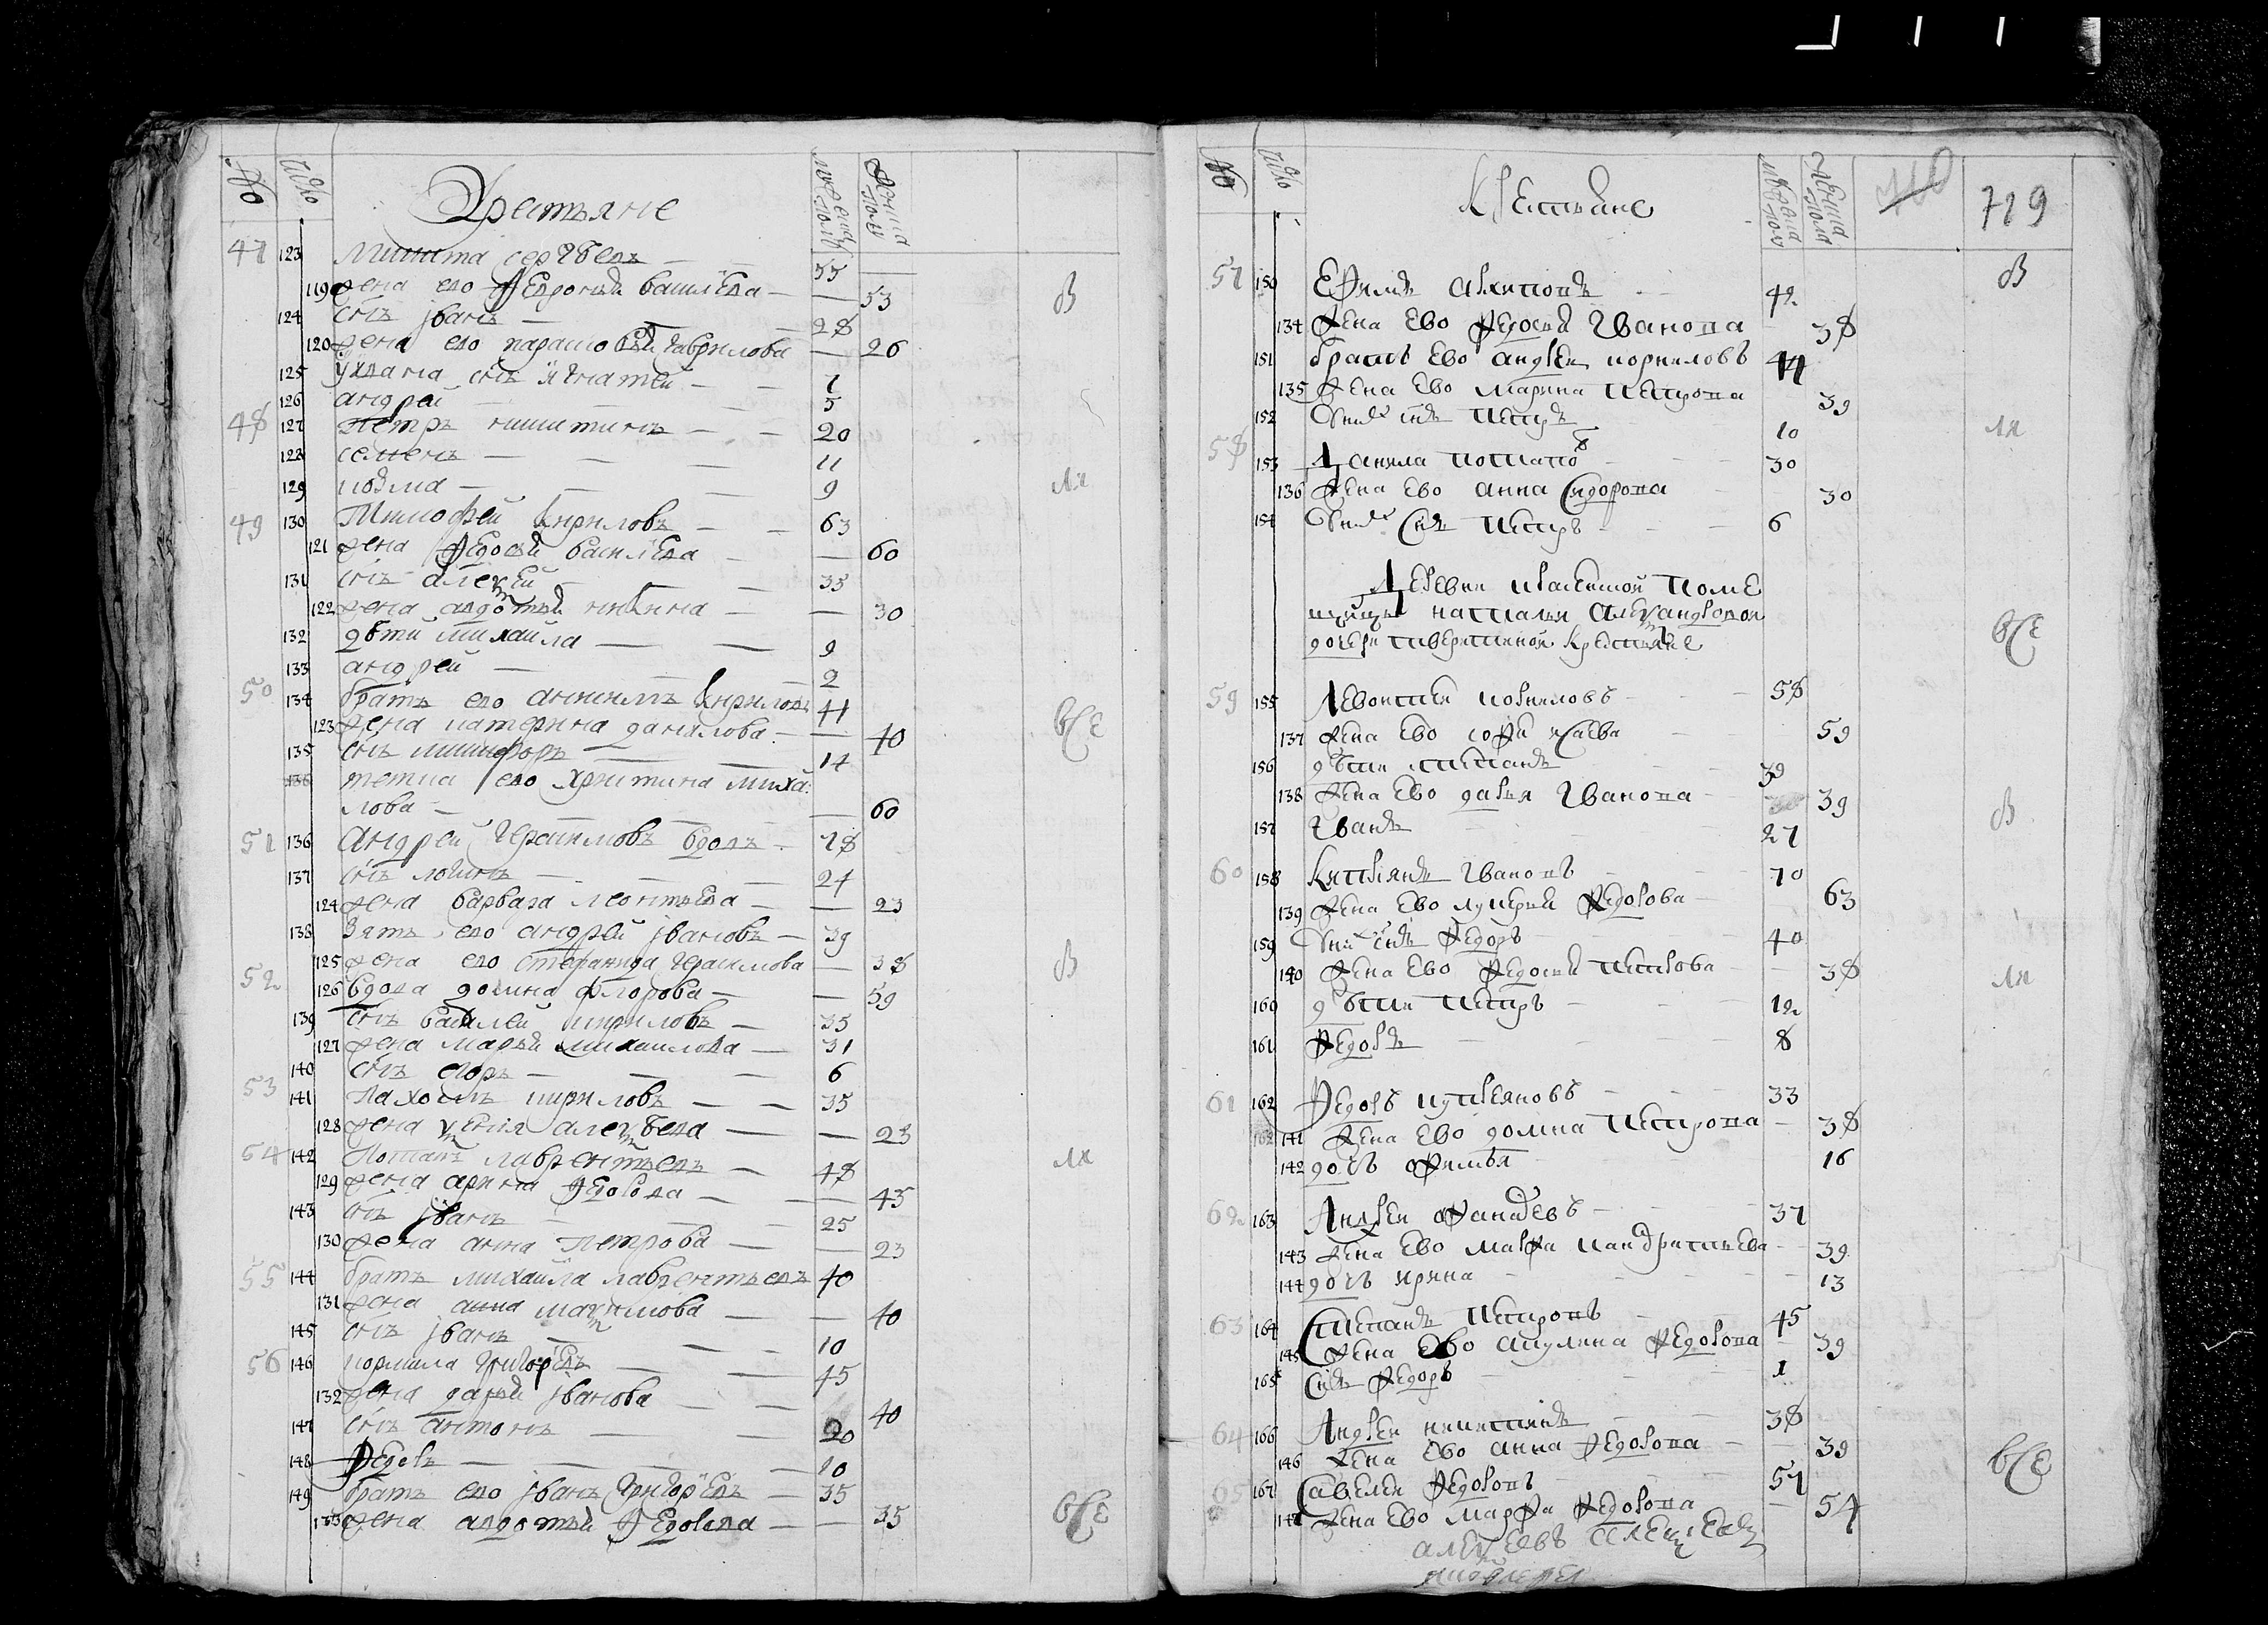 № Число Крестьяне мужеска полу женска полу
47 123 Никита сергѣевъ 55
119 жена ево Федосья василева 53
124 снъ иванъ 28
120 жена ево парасковья гаврилова 26
125 у ивана снъ игнатей 7
126 андрей 5
48 127 петръ никитинъ 20
128 семенъ 11
129 козма 9
49 130 Тимофей кириловъ 63
121 жена Федосья василева 60
131 снъ алексей 35
122 жена авдотья никина 30
132 дѣти михаила 9
133 андрей 2
50 134 братъ ево анкимъ кириловъ 41
123 жена катерина данилова 40
135 снъ никифоръ 14
тетка ево христина миха
лова 60
51 136 Андрей герасимовъ вдовъ 78
137 снъ логинъ 24
124 жена варвара леонтьева 23
138 зять ево андрей ивановъ 39
125 жена ево степанида герасимова 38
52 126 вдова домна флорова 59
139 снъ василей кириловъ 35
127 жена марья михаилова 31
140 снъ егоръ 6
53 141 Пахомъ кириловъ 35
128 жена ксенья алексѣева 23
54 142 Потапъ лаврентьевъ 48
129 жена арина Федорова 45
143 снъ иванъ 25
130 жена анна петрова 23
55 144 братъ михаила лаврентьевъ 40
131 жена анна максимова 40
145 снъ иванъ 10
56 146 кормила григорьевъ 45
132 жена дарья иванова 40
147 снъ антонъ 20
148 Федоръ 10
149 братъ ево иванъ григорьевъ 35
133 жена авдотья Федорова 35
№ Число Крестьяне мужеска полу женска пола 719
57 150 Ефимъ архиповъ 42
134 жена ево Федосья Иванова 38
151 братъ ево андрей корниловъ 44
135 жена ево марина петрова 39
152 У них снъ петръ 10
58 153 Данила потапов 30
136 жена ево анна сидорова 30
154 У них снъ петръ 6
Деревни поме
щицы наталья александровой
дочери тверитиной крестьяне
59 155 Левонтей корниловъ 58
137 жена ево софья исаева 59
156 дѣти степанъ 39
138 жена ево дарья Иванова 39
157 Иванъ 27
60 158 Киприянъ Ивановъ 70
139 жена ево лукерья Федорова 63
159 У них снъ Федоръ 40
140 жена ево Федосья петрова 38
160 дѣти петръ 12
161 Федоръ 8
61 162 Федоръ куприяновъ 33
141 жена ево домна петрова 38
142 дочь офимья 16
62 163 Андрей офанасевъ 37
143 жена ево марфа кандратьева 39
144 дочь ирина 13
63 164 Степанъ петровъ 45
145 жена ево акулина Федорова 39
165 снъ Федоръ 1
64 166 Андрей никитинъ 38
146 жена ево анна Федорова 39
65 167 Савелей Федоровъ 57
147 жена ево марфа Федорова 54